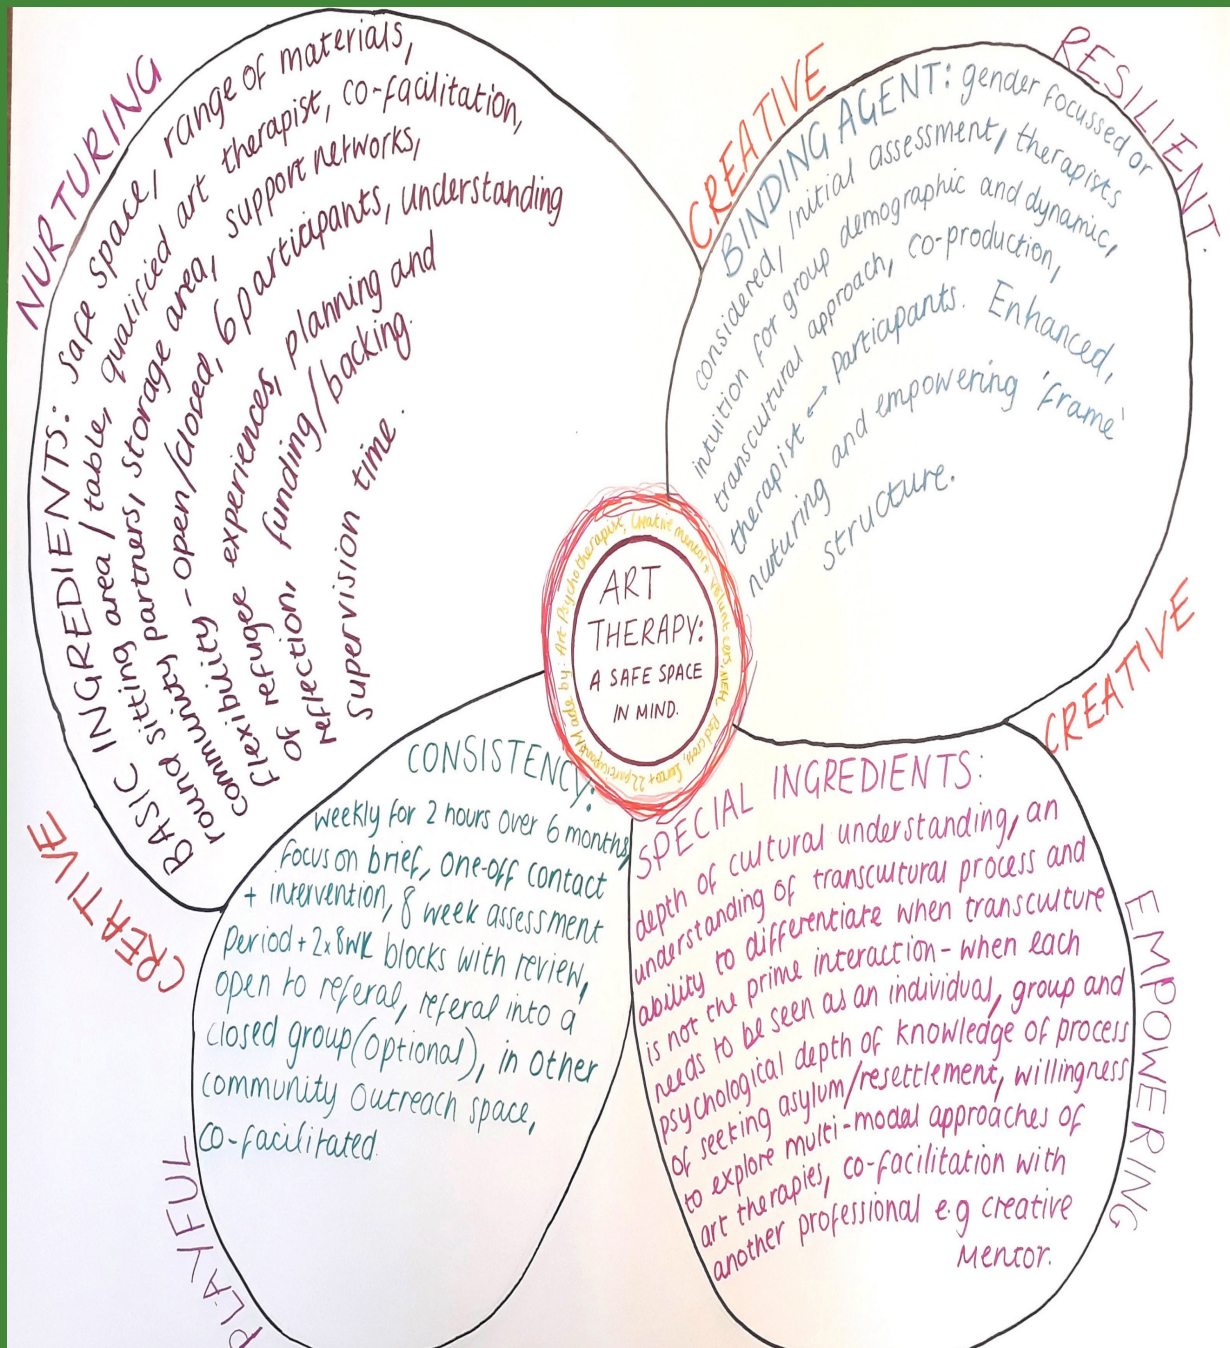 NURTURING
BASIC INGREDIENTS: safe space, range of materials,
round sitting area/table, qualified art therapist, co-facilitation,
community partners, storage area, support networks,
flexibility - open/closed, 6 participants, understanding
of refugee experiences, planning and
reflection, funding/backing.
Supervision time.
CREATIVE
RESILIENT.
BINDING AGENT: gender focussed or
considered, Initial assessment, therapists
intuition for group demographic and dynamic,
transcultural approach, co-production,
therapist ↔ Participants. Enhanced,
nuturing and empowering 'frame'
structure.
Made by: Art Psychotherapist, Creative mentor + Volunteers,
Red cross,
+ 22 participants
ART
THERAPY:
A SAFE SPACE
IN MIND.
CREATIVE
CONSISTENCY:
weekly for 2 hours over 6 months,
Focus on brief, one-off contact
+ intervention, 8 week assessment
Period + 2x8WK blocks with review,
open to referal, referal into a
closed group (optional), in other
community outreach space,
co-facilitated.
CREATIVE
PLAYFUL
SPECIAL INGREDIENTS:
depth of cultural understanding, an
understanding of transcultural process and
ability to differentiate when transculture
is not the prime interaction - when each
needs to be seen as an individual, group and
psychological depth of knowledge of process
of seeking asylum/resettlement, willingness
to explore multi-modal approaches of
art therapies, co-facilitation with
another professional e.g creative
Mentor.
EMPOWERING